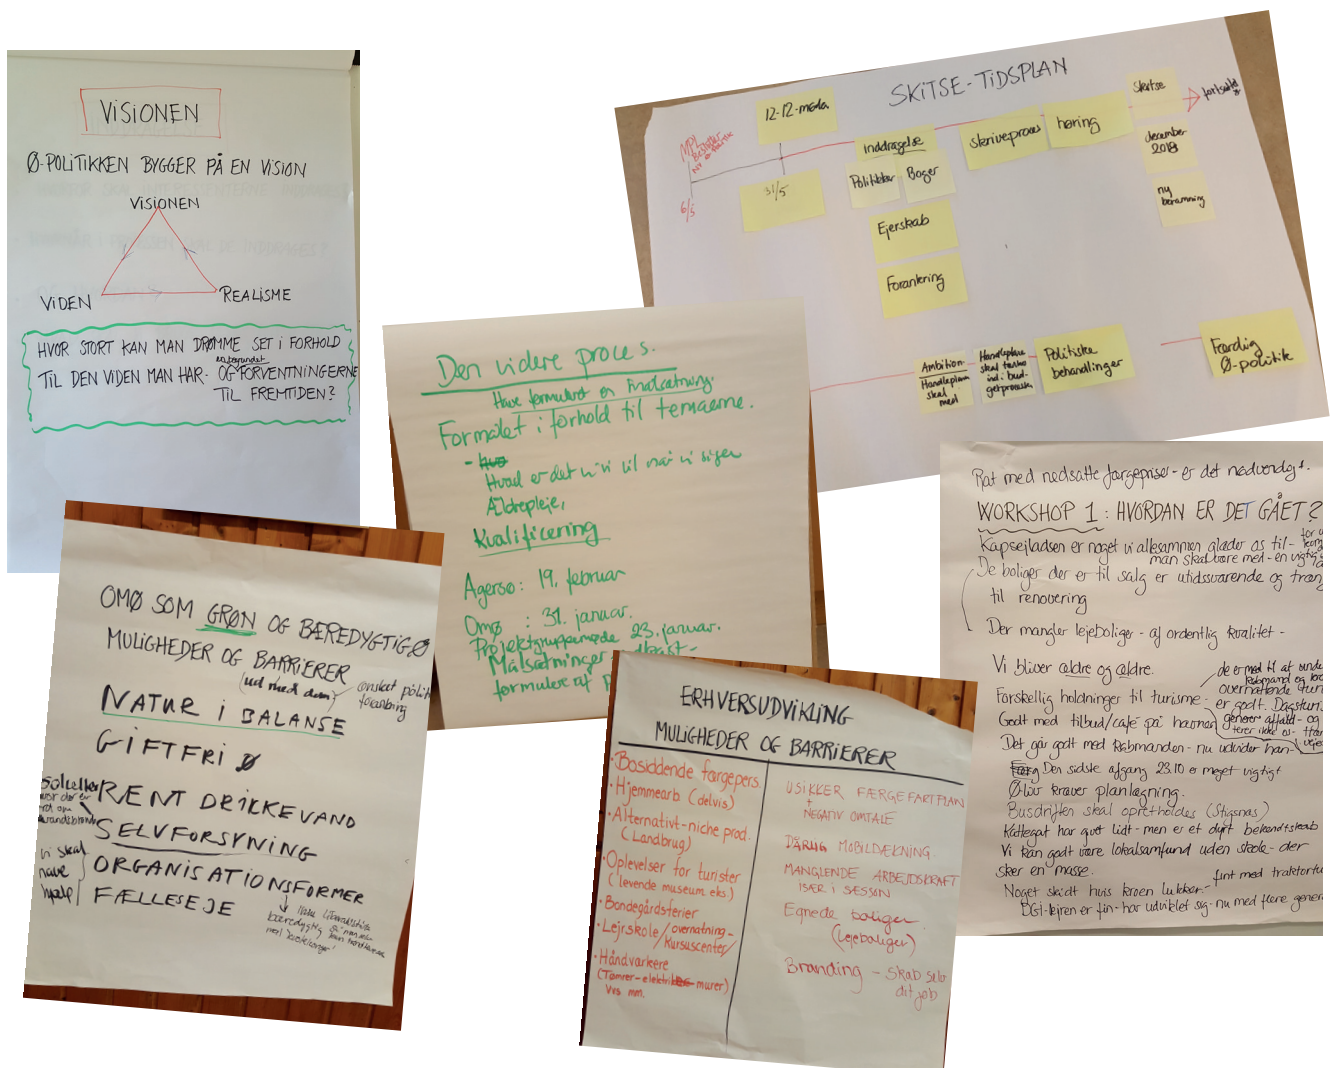 VISIONEN
Ø-POLITIKKEN BYGGER PÅ EN VISION
VISIONEN
VIDEN
REALISME
HVOR STORT KAN MAN DRØMME SET i FORHOLD
TIL DEN VIDEN MAN HAR- OG FORVENTNINGERNE
TIL FREMTIDEN?
SKITSE-TIDSPLAN
6/3
12-12-møde
31/5
Inddragelse
Politikker
Borger
Ejerskab
Forankring
skriveproces
høring
Skitse
december
2018
ny
bemanning
Ambition-
Handleplan
skal
med
Handleplan
skal tænkes
ind i bud-
getproces
Politiske
behandlinger
Færdig
Ø-politik
Den videre proces.
Have formuleret en målsætning.
Formålet i forhold til temaerne.
Hvad er det vi vil når vi siger
Ældrepleje,
Kvalificering
Agersø: 19. februar
Omø : 31. januar.
Projektgruppemøde 23. januar.
Målsætninger
formuleret af
OMØ SOM GRØN OG BÆREDYGTIG Ø
MULIGHEDER OG BARRIERER
(ud med dem)
ønsket politisk
forankring
NATUR i BALANSE
GIFTFRI Ø
RENT DRIKKEVAND
SELVFORSYNING
ORGANISATIONSFORMER
FÆLLESEJE
vi skal
have
hjælp
bæredygtig
ERHVERSUDVIKLING
MULIGHEDER OG BARRIERER
• Bosiddende færgepers.
• Hjemmearb (delvis)
• Alternativt-niche prod.
(Landbrug)
• Oplevelser for turister
(levende museum eks.)
• Bondegårdsferier
• Lejrskole/overnatning-
kursuscenter/
• Håndværkere
(Tømrer-elektriker-murer)
Vvs mm.
USIKKER FÆRGEFARTPLAN
+
NEGATIV OMTALE
DÅRLIG MOBILDÆKNING.
MANGLENDE ARBEJDSKRAFT
ISÆR i SÆSON
Egnede boliger
(lejeboliger)
Branding - skab selv
dit job
Flot med nedsatte færgepriser - er det nødvendigt.
WORKSHOP 1: HVORDAN ER DET GÅET?
Kapsejladsen er noget vi allesammen glæder os til-
man skal være med - en vigtig
De boliger der er til salg er utidssvarende og træn
til renovering
Der mangler lejeboliger - af ordentlig kvalitet -
Vi bliver ældre og ældre.
Forskellig holdninger til turisme -
er godt. Dagsturis
Godt med tilbud/café på havnen
Det går godt med Købmanden - nu udvider han
Den sidste afgang 23.10 er meget vigtigt
Ølliv kræver planlægning.
Busdriften skal opretholdes (Stigsnæs)
Kattegat har givet lidt - men er et dyrt bekendtskab
Vi kan godt være lokalsamfund uden skole - der
sker en masse.
Noget skidt hvis kroen lukker-
fint med traktortur
DGI-lejren er fin - har udviklet sig - nu med flere gener